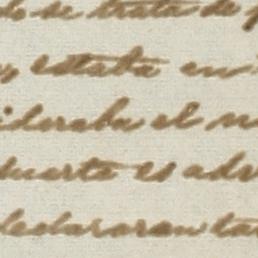 do se trata de
estaba en
ideraba el
duarte es adv
dedararan ta